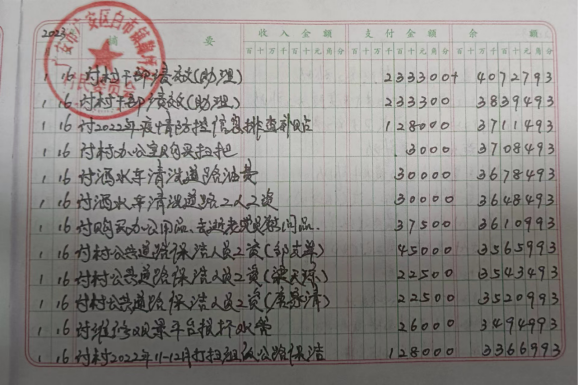 2023 摘 要 收入金额 支付金额 余额
百十万千百十元角分 百十万千百十元角分 百十万千百十元角分
广安市广安区白市镇 村民委员会
1 16 付村干部绩效(助理) 233300+ 4072793
1 16 付村干部绩效(助理) 233300 3839493
1 16 付2022年疫情防控信息排查补贴 128000 3711493
1 16 付村办公室购买扫把 3000 3708493
1 16 付洒水车清洗道路油费 30000 3678493
1 16 付洒水车清洗道路2人工资 30000 3648493
1 16 付购买办公用品、去逝老党员慰问品 37500 3610993
1 16 付村公共道路保洁人员工资(邹) 45000 3565993
1 16 付村公共道路保洁人员工资(梁) 22500 3543493
1 16 付村公共道路保洁人员工资 22500 3520993
1 16 付维修观景平台 费 26000 3494993
1 16 付村2022年11-12月打扫组级公路保洁 128000 3366993